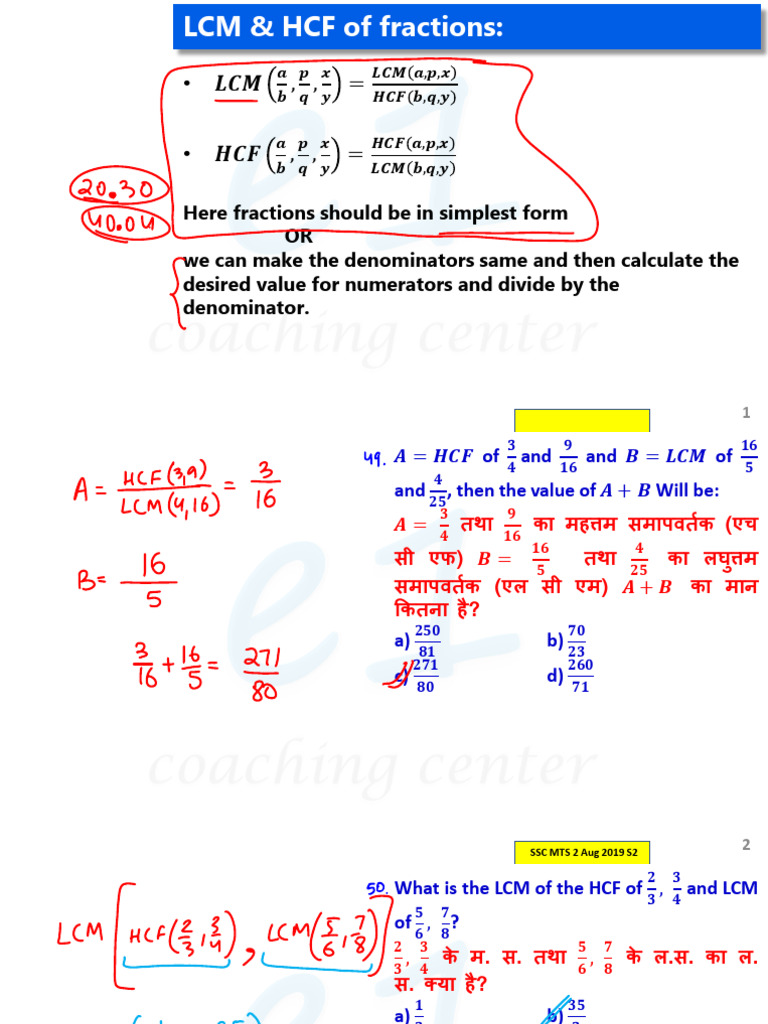 LCM & HCF of fractions:
• LCM (a/b, p/q, x/y) = LCM(a,p,x)/HCF(b,q,y)
• HCF (a/b, p/q, x/y) = HCF(a,p,x)/LCM(b,q,y)
20.30
40.04
Here fractions should be in simplest form
OR
we can make the denominators same and then calculate the
desired value for numerators and divide by the
denominator.
coaching center
1
49. A = HCF of 3/4 and 9/16 and B = LCM of 16/5
and 4/25, then the value of A + B Will be:
A = 3/4 तथा 9/16 का महत्तम समापवर्तक (एच
सी एफ) B = 16/5 तथा 4/25 का लघुत्तम
समापवर्तक (एल सी एम) A + B का मान
कितना है?
a) 250/81 b) 70/23
c) 271/80 d) 260/71
A = HCF(3,9)/LCM(4,16) = 3/16
B = 16/5
3/16 + 16/5 = 271/80
e1
coaching center
2
SSC MTS 2 Aug 2019 S2
50. What is the LCM of the HCF of 2/3, 3/4 and LCM
of 5/6, 7/8?
2/3, 3/4 के म. स. तथा 5/6, 7/8 के ल.स. का ल.
स. क्या है?
LCM [HCF(2/3, 3/4), LCM(5/6, 7/8)]